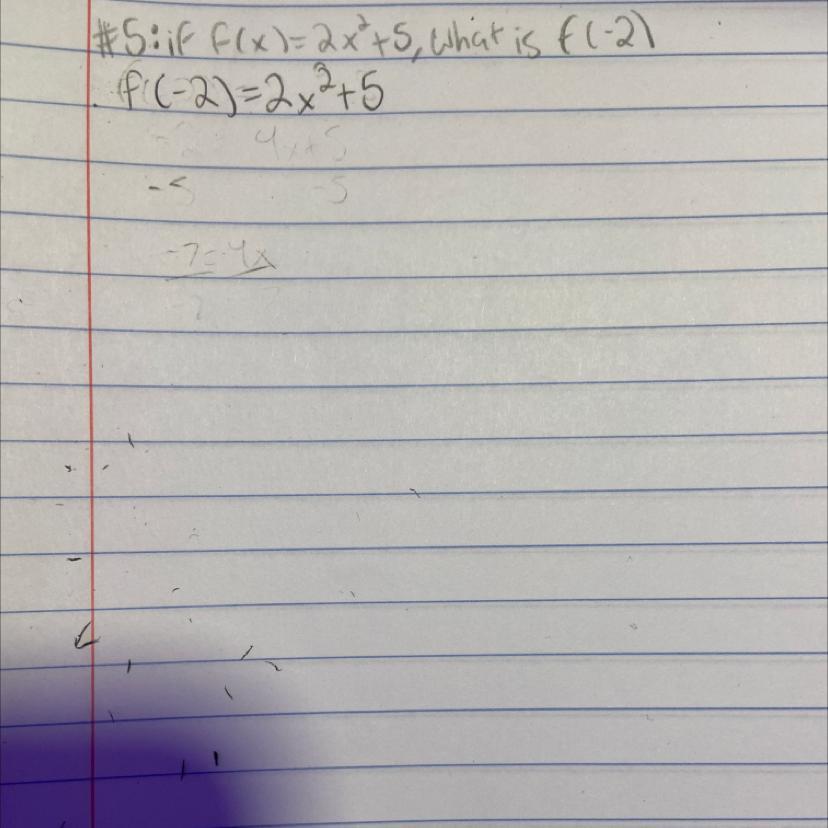 #5: if f(x)=2x²+5, what is f(-2)
f(-2)=2x²+5
-2 4x+5
-5 -5
-7=4x
-7